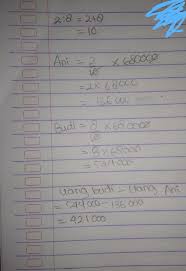 2:8 = 2+8
= 10
Ani = 2/10 × 680000
= 2 × 68000
= 136 000
Budi = 8/10 × 680000
= 8 × 68000
= 544 000
uang budi - Uang Ani
= 544 000 - 136 000
= 421 000